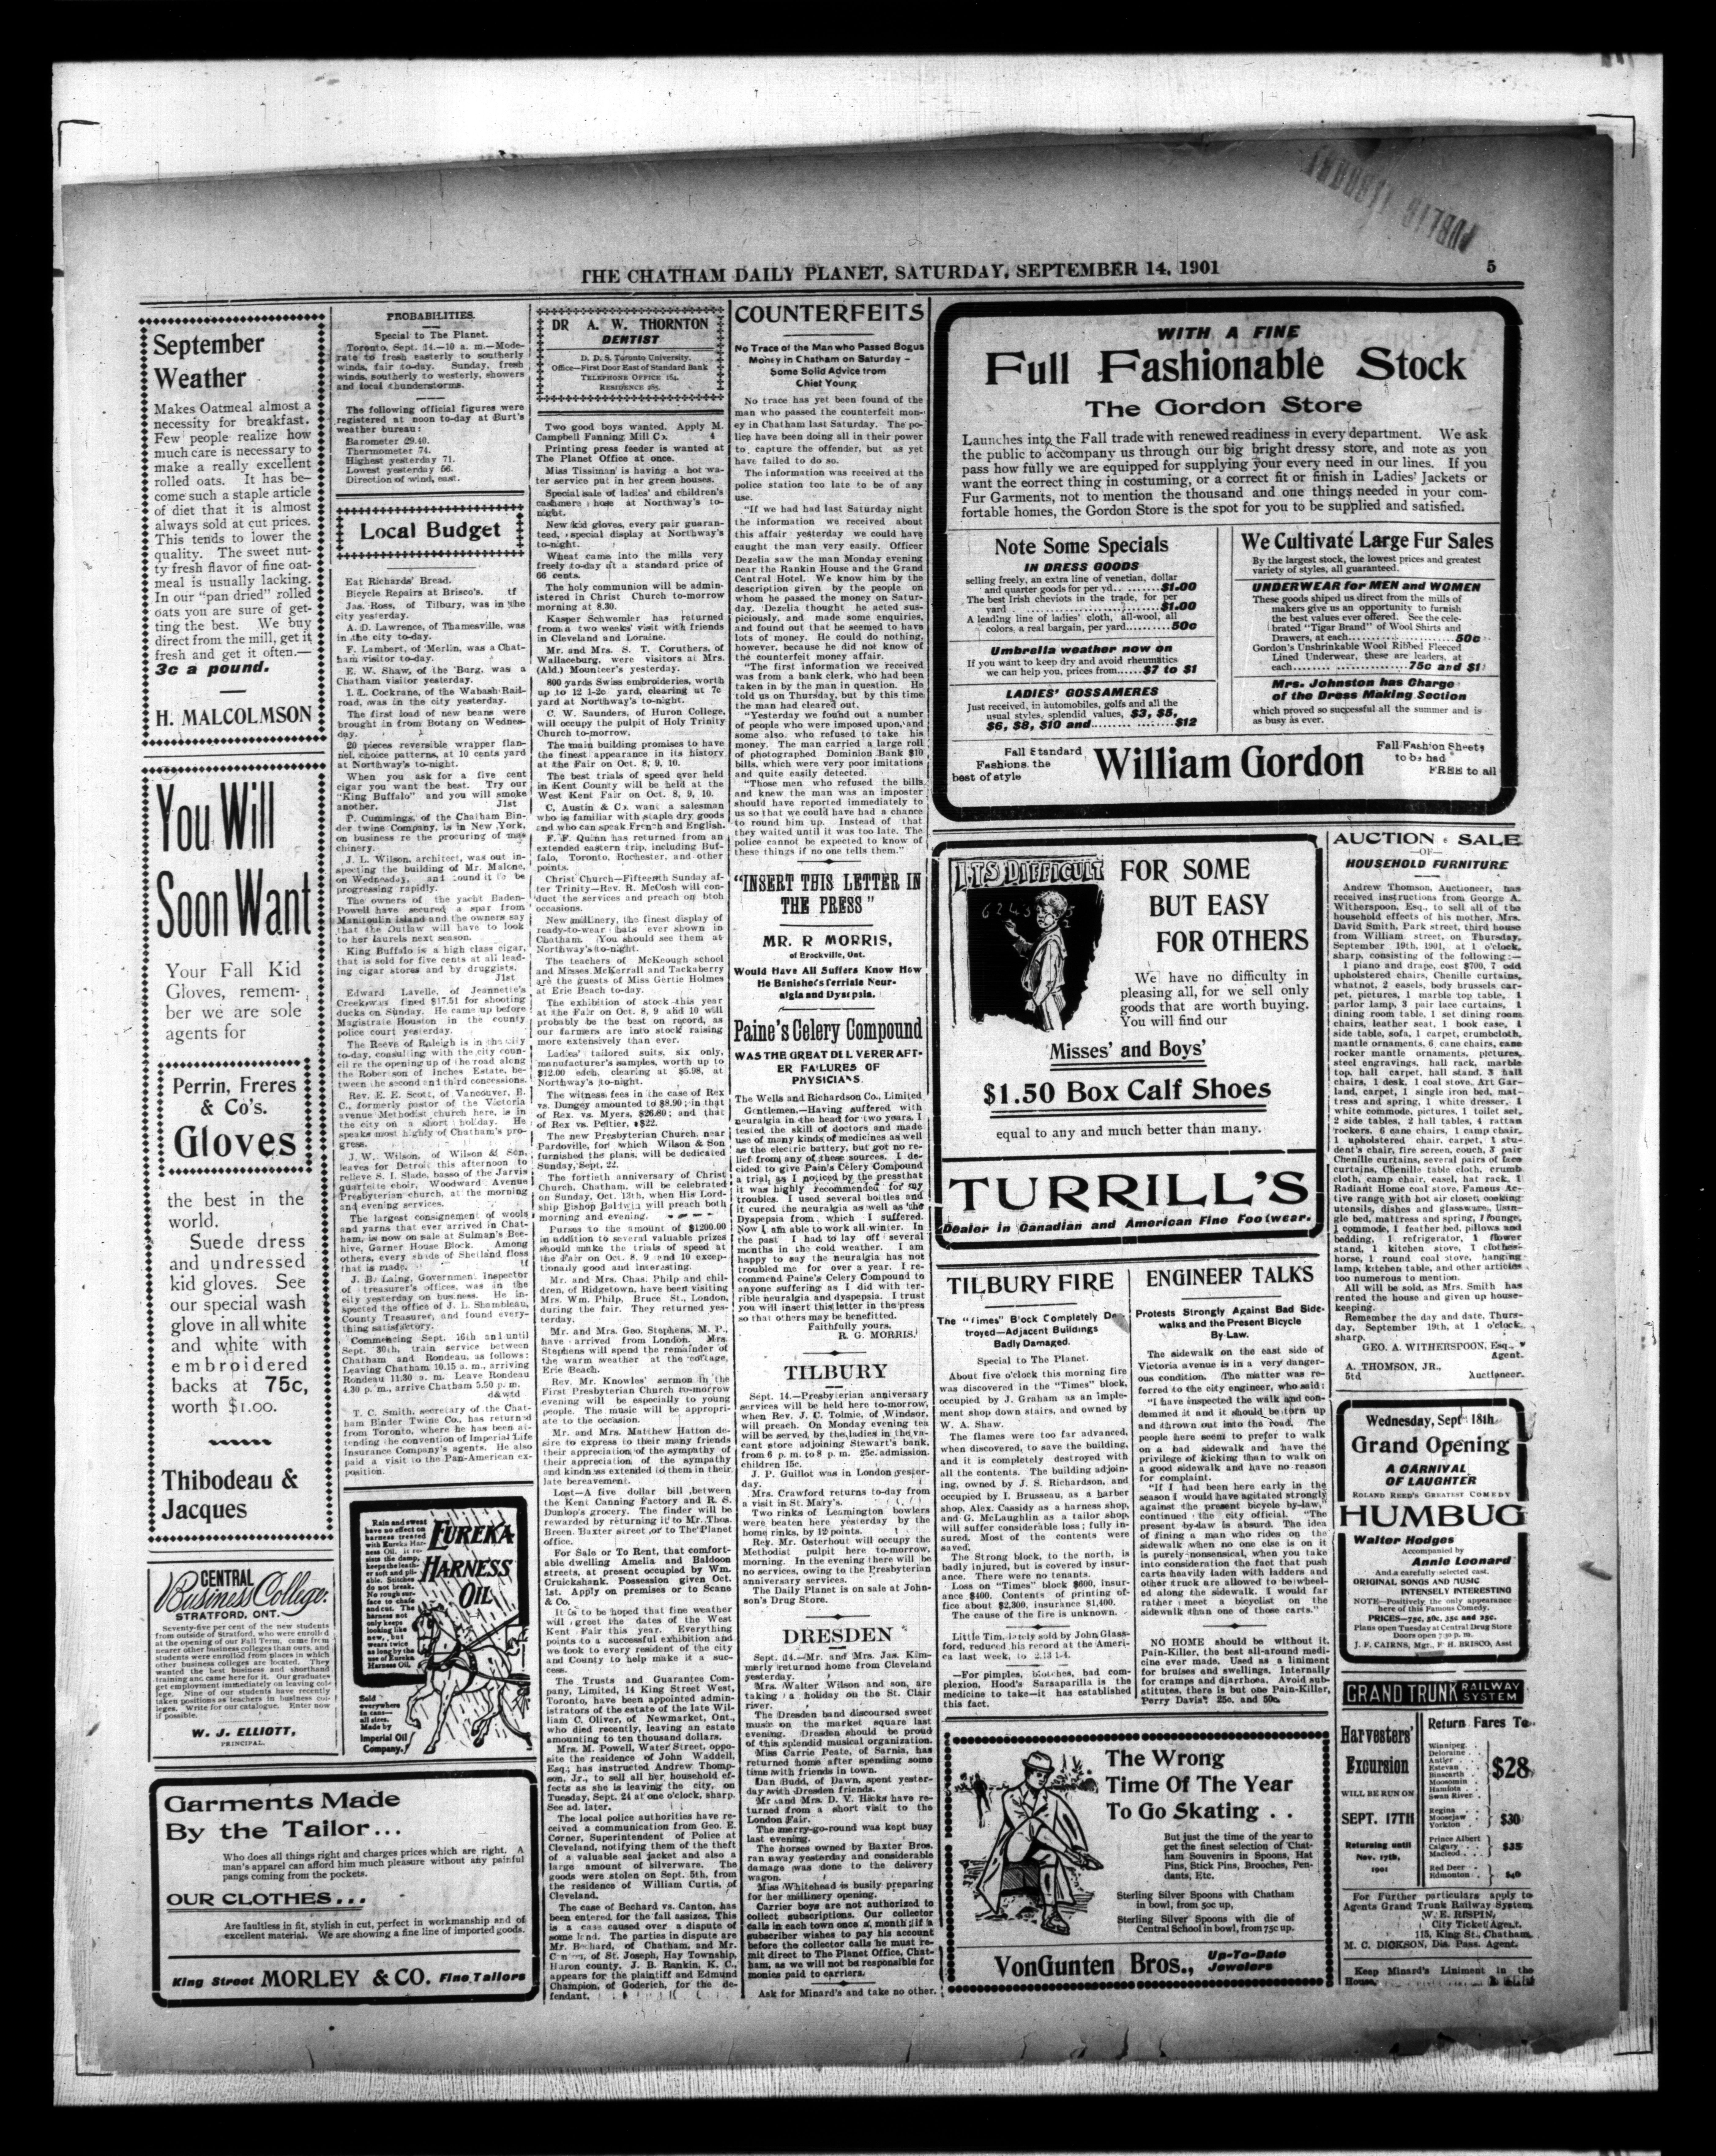 THE CHATHAM DAILY PLANET, SATURDAY, SEPTEMBER 14, 1901
5
PUBLIC
September
Weather
Makes Oatmeal almost a
necessity for breakfast.
Few people realize how
much care is necessary to
make a really excellent
rolled oats. It has be-
come such a staple article
of diet that it is almost
always sold at cut prices.
This tends to lower the
quality. The sweet nut-
ty fresh flavor of fine oat-
meal is usually lacking.
In our "pan dried" rolled
oats you are sure of get-
ting the best. We buy
direct from the mill, get it
fresh and get it often.—
3c a pound.
H. MALCOLMSON
You Will
Soon Want
Your Fall Kid
Gloves, remem-
ber we are sole
agents for
Perrin, Freres
& Co's.
Gloves
the best in the
world.
Suede dress
and undressed
kid gloves. See
our special wash
glove in all white
and white with
embroidered
backs at 75c,
worth $1.00.
Thibodeau &
Jacques
CENTRAL
Business College.
STRATFORD, ONT.
Seventy-five per cent of the new students
from outside of Stratford, who were enrolled
at the opening of our Fall Term, came from
nearer other business colleges than ours, and
students were enrolled from places in which
other business colleges are located. They
wanted the best business and shorthand
training and came here for it. Our graduates
get employment immediately on leaving col-
lege. Nine of our students have recently
taken positions as teachers in business col-
leges. Write for our catalogue. Enter now
if possible.
W. J. ELLIOTT,
PRINCIPAL.
Garments Made
By the Tailor...
Who does all things right and charges prices which are right. A
man's apparel can afford him much pleasure without any painful
pangs coming from the pockets.
OUR CLOTHES...
Are faultless in fit, stylish in cut, perfect in workmanship and of
excellent material. We are showing a fine line of imported goods.
King Street MORLEY & CO. Fine Tailors
PROBABILITIES.
Special to The Planet.
Toronto, Sept. 14.—10 a. m.—Mode-
rate to fresh easterly to southerly
winds, fair to-day. Sunday, fresh
winds, southerly to westerly, showers
and local thunderstorms.
The following official figures were
registered at noon to-day at Burt's
weather bureau:
Barometer 29.40.
Thermometer 74.
Highest yesterday 71.
Lowest yesterday 56.
Direction of wind, east.
Local Budget
Eat Richards' Bread.
Bicycle Repairs at Brisco's. tf
Jas. Ross, of Tilbury, was in the
city yesterday.
A. D. Lawrence, of Thamesville, was
in the city to-day.
F. Lambert, of Merlin, was a Chat-
ham visitor to-day.
E. W. Shaw, of the Burg, was a
Chatham visitor yesterday.
I. L. Cockrane, of the Wabash Rail-
road, was in the city yesterday.
The first load of new beans were
brought in from Botany on Wednes-
day.
20 pieces reversible wrapper flan-
nel, choice patterns, at 10 cents yard
at Northway's to-night.
When you ask for a five cent
cigar you want the best. Try our
"King Buffalo" and you will smoke
another. J1st
P. Cummings, of the Chatham Bin-
der twine Company, is in New York,
on business re the procuring of mas
chinery.
J. L. Wilson, architect, was out in-
specting the building of Mr. Malone,
on Wednesday, and found it to be
progressing rapidly.
The owners of the yacht Baden-
Powell have secured a spar from
Manitoulin island and the owners say
that the Outlaw will have to look
to her laurels next season.
King Buffalo is a high class cigar,
that is sold for five cents at all lead-
ing cigar stores and by druggists.
J1st
Edward Lavelle, of Jeannette's
Creek, was fined $17.51 for shooting
ducks on Sunday. He came up before
Magistrate Houston in the county
police court yesterday.
The Reeve of Raleigh is in the city
to-day, consulting with the city coun-
cil re the opening up of the road along
the Robertson of Inches Estate, be-
tween the second and third concessions.
Rev. E. E. Scott, of Vancouver, B.
C., formerly pastor of the Victoria
avenue Methodist church here, is in
the city on a short holiday. He
speaks most highly of Chatham's pro-
gress.
J. W. Wilson, of Wilson & Son,
leaves for Detroit this afternoon to
relieve S. I. Slade, basso of the Jarvis
quartette choir, Woodward Avenue
Presbyterian church, at the morning
and evening services.
The largest consignement of wools
and yarns that ever arrived in Chat-
ham, is now on sale at Sulman's Bee-
hive, Garner House Block. Among
others, every shade of Shetland floss
that is made. tf
J. B. Laing, Government Inspector
of treasurer's offices, was in the
city yesterday on business. He in-
spected the office of J. L. Shambleau,
County Treasurer, and found every-
thing satisfactory.
Commencing Sept. 16th and until
Sept. 30th, train service between
Chatham and Rondeau, as follows:
Leaving Chatham 10.15 a. m., arriving
Rondeau 11.30 a. m. Leave Rondeau
4.30 p. m., arrive Chatham 5.50 p. m.
d&wtd
T. C. Smith, secretary of the Chat-
ham Binder Twine Co., has returned
from Toronto, where he has been at-
tending the convention of Imperial Life
Insurance Company's agents. He also
paid a visit to the Pan-American ex-
position.
Rain and sweat
have no effect on
harness treated
with Eureka Har-
ness Oil. It re-
sists the damp,
keeps the leath-
er soft and pli-
able. Stitches
do not break.
No rough sur-
face to chafe
and cut. The
harness not
only keeps
looking like
new, but
wears twice
as long by the
use of Eureka
Harness Oil.
EUREKA
HARNESS
OIL
Sold
everywhere
in cans—
all sizes.
Made by
Imperial Oil
Company.
DR A. W. THORNTON
DENTIST
D. D. S. Toronto University.
Office—First Door East of Standard Bank
TELEPHONE OFFICE 164.
RESIDENCE 285.
Two good boys wanted. Apply M.
Campbell Fanning Mill Co. 4
Printing press feeder is wanted at
The Planet Office at once.
Miss Tissiman is having a hot wa-
ter service put in her green houses.
Special sale of ladies' and children's
cashmere hose at Northway's to-
night.
New kid gloves, every pair guaran-
teed, special display at Northway's
to-night.
Wheat came into the mills very
freely to-day at a standard price of
66 cents.
The holy communion will be admin-
istered in Christ Church to-morrow
morning at 8.30.
Kasper Schwemler has returned
from a two weeks' visit with friends
in Cleveland and Loraine.
Mr. and Mrs. S. T. Coruthers, of
Wallaceburg, were visitors at Mrs.
(Ald.) Mounteer's yesterday.
800 yards Swiss embroideries, worth
up to 12 1-2c yard, clearing at 7c
yard at Northway's to-night.
C. W. Saunders, of Huron College,
will occupy the pulpit of Holy Trinity
Church to-morrow.
The main building promises to have
the finest appearance in its history
at the Fair on Oct. 8, 9, 10.
The best trials of speed ever held
in Kent County will be held at the
West Kent Fair on Oct. 8, 9, 10.
C. Austin & Co. want a salesman
who is familiar with staple dry goods
and who can speak French and English.
F. F. Quinn has returned from an
extended eastern trip, including Buf-
falo, Toronto, Rochester, and other
points.
Christ Church—Fifteenth Sunday af-
ter Trinity—Rev. R. McCosh will con-
duct the services and preach on btoh
occasions.
New millinery, the finest display of
ready-to-wear hats ever shown in
Chatham. You should see them at
Northway's to-night.
The teachers of McKeough school
and Misses McKerrall and Tackaberry
are the guests of Miss Gertie Holmes
at Erie Beach to-day.
The exhibition of stock this year
at the Fair on Oct. 8, 9 and 10 will
probably be the best on record, as
our farmers are into stock raising
more extensively than ever.
Ladies' tailored suits, six only,
manufacturer's samples, worth up to
$12.00 each, clearing at $5.98, at
Northway's to-night.
The witness fees in the case of Rex
vs. Dungey amounted to $8.90; in that
of Rex vs. Myers, $26.80; and that
of Rex vs. Peltier, $22.
The new Presbyterian Church, near
Pardoville, for which Wilson & Son
furnished the plans, will be dedicated
Sunday, Sept. 22.
The fortieth anniversary of Christ
Church, Chatham, will be celebrated
on Sunday, Oct. 13th, when His Lord-
ship Bishop Baldwin will preach both
morning and evening.
Purses to the amount of $1200.00
in addition to several valuable prizes
should make the trials of speed at
the Fair on Oct. 8, 9 and 10 excep-
tionally good and interesting.
Mr. and Mrs. Chas. Philp and chil-
dren, of Ridgetown, have been visiting
Mrs. Wm. Philp, Bruce St., London,
during the fair. They returned yes-
terday.
Mr. and Mrs. Geo. Stephens, M. P.,
have arrived from London. Mrs.
Stephens will spend the remainder of
the warm weather at the cottage,
Erie Beach.
Rev. Mr. Knowles' sermon in the
First Presbyterian Church to-morrow
evening will be especially to young
people. The music will be appropri-
ate to the occasion.
Mr. and Mrs. Matthew Hatton de-
sire to express to their many friends
their appreciation of the sympathy of
their appreciation of the sympathy
and kindness extended to them in their
late bereavement.
Lost—A five dollar bill between
the Kent Canning Factory and R. S.
Dunlop's grocery. The finder will be
rewarded by returning it to Mr. Thos.
Breen, Baxter street, or to The Planet
office.
For Sale or To Rent, that comfort-
able dwelling Amelia and Baldoon
streets, at present occupied by Wm.
Cruickshank. Possession given Oct.
1st. Apply on premises or to Scane
& Co.
It is to be hoped that fine weather
will greet the dates of the West
Kent Fair this year. Everything
points to a successful exhibition and
we look to every resident of the city
and County to help make it a suc-
cess.
The Trusts and Guarantee Com-
pany, Limited, 14 King Street West,
Toronto, have been appointed admin-
istrators of the estate of the late Wil-
liam C. Oliver, of Newmarket, Ont.,
who died recently, leaving an estate
amounting to ten thousand dollars.
Mrs. M. Powell, Water Street, oppo-
site the residence of John Waddell,
Esq., has instructed Andrew Thomp-
son, Jr., to sell all her household ef-
fects as she is leaving the city, on
Tuesday, Sept. 24 at one o'clock, sharp.
See ad. later.
The local police authorities have re-
ceived a communication from Geo. E.
Corner, Superintendent of Police at
Cleveland, notifying them of the theft
of a valuable seal jacket and also a
large amount of silverware. The
goods were stolen on Sept. 5th, from
the residence of William Curtis, of
Cleveland.
The case of Bechard vs. Canton, has
been entered for the fall assizes. This
is a case caused over a dispute of
some land. The parties in dispute are
Mr. Bechard, of Chatham, and Mr.
of St. Joseph, Hay Township,
Huron county. J. B. Rankin, K. C.,
appears for the plaintiff and Edmund
Champion, of Goderich, for the de-
fendant.
COUNTERFEITS
No Trace of the Man who Passed Bogus
Money in Chatham on Saturday –
Some Solid Advice from
Chief Young
No trace has yet been found of the
man who passed the counterfeit mon-
ey in Chatham last Saturday. The po-
lice have been doing all in their power
to capture the offender, but as yet
have failed to do so.
The information was received at the
police station too late to be of any
use.
"If we had had last Saturday night
the information we received about
this affair yesterday we could have
caught the man very easily. Officer
Dezelia saw the man Monday evening
near the Rankin House and the Grand
Central Hotel. We know him by the
description given by the people on
whom he passed the money on Satur-
day. Dezelia thought he acted sus-
piciously, and made some enquiries,
and found out that he seemed to have
lots of money. He could do nothing,
however, because he did not know of
the counterfeit money affair.
"The first information we received
was from a bank clerk, who had been
taken in by the man in question. He
told us on Thursday, but by this time
the man had cleared out.
"Yesterday we found out a number
of people who were imposed upon, and
some also who refused to take his
money. The man carried a large roll
of photographed Dominion Bank $10
bills, which were very poor imitations
and quite easily detected.
"Those men who refused the bills
and knew the man was an imposter
should have reported immediately to
us so that we could have had a chance
to round him up. Instead of that
they waited until it was too late. The
police cannot be expected to know of
these things if no one tells them."
"INSERT THIS LETTER IN
THE PRESS"
MR. R MORRIS,
of Brockville, Ont.
Would Have All Suffers Know How
He Banished Terriale Neur-
algia and Dyspepsia.
Paine's Celery Compound
WAS THE GREAT DELIVERER AFT-
ER FAILURES OF
PHYSICIANS.
The Wells and Richardson Co., Limited
Gentlemen,—Having suffered with
neuralgia in the head for two years, I
tested the skill of doctors and made
use of many kinds of medicines as well
as the electric battery, but got no re-
lief from any of these sources. I de-
cided to give Pain's Celery Compound
a trial, as I noticed by the pressthat
it was highly recommended for my
troubles. I used several bottles and
it cured the neuralgia as well as the
Dyspepsia from which I suffered.
Now I am able to work all winter. In
the past I had to lay off several
months in the cold weather. I am
happy to say the neuralgia has not
troubled me for over a year. I re-
commend Paine's Celery Compound to
anyone suffering as I did with ter-
rible neuralgia and dyspepsia. I trust
you will insert this letter in the press
so that others may be benefitted.
Faithfully yours,
R. G. MORRIS.
TILBURY
Sept. 14.—Presbyterian anniversary
services will be held here to-morrow,
when Rev. J. C. Tolmie, of Windsor,
will preach. On Monday evening tea
will be served by the ladies in the va-
cant store adjoining Stewart's bank,
from 6 p. m. to 8 p. m. 25c. admission,
children 15c.
J. P. Guillot was in London yester-
day.
Mrs. Crawford returns to-day from
a visit in St. Mary's.
Two rinks of Leamington bowlers
were beaten here yesterday by the
home rinks, by 12 points.
Rev. Mr. Osterhout will occupy the
Methodist pulpit here to-morrow,
morning. In the evening there will be
no services, owing to the Presbyterian
anniversary services.
The Daily Planet is on sale at John-
son's Drug Store.
DRESDEN
Sept. 14.—Mr. and Mrs. Jas. Kim-
merly returned home from Cleveland
yesterday.
Mrs. Walter Wilson and son, are
taking a holiday on the St. Clair
river.
The Dresden band discoursed sweet
music on the market square last
evening. Dresden should be proud
of this splendid musical organization.
Miss Carrie Peate, of Sarnia, has
returned home after spending some
time with friends in town.
Dan Budd, of Dawn, spent yester-
day with Dresden friends.
Mr and Mrs. D. V. Hicks have re-
turned from a short visit to the
London Fair.
The merry-go-round was kept busy
last evening.
The horses owned by Baxter Bros.
ran away yesterday and considerable
damage was done to the delivery
wagon.
Miss Whitehead is busily preparing
for her millinery opening.
Carrier boys are not authorized to
collect subscriptions. Our collector
calls in each town once a month; if a
subscriber wishes to pay his account
before the collector calls he must re-
mit direct to The Planet Office, Chat-
ham, as we will not be responsible for
monies paid to carriers.
Ask for Minard's and take no other.
WITH A FINE
Full Fashionable Stock
The Gordon Store
Launches into the Fall trade with renewed readiness in every department. We ask
the public to accompany us through our big bright dressy store, and note as you
pass how fully we are equipped for supplying your every need in our lines. If you
want the eorrect thing in costuming, or a correct fit or finish in Ladies' Jackets or
Fur Garments, not to mention the thousand and one things needed in your com-
fortable homes, the Gordon Store is the spot for you to be supplied and satisfied.
Note Some Specials
IN DRESS GOODS
selling freely, an extra line of venetian, dollar
and quarter goods for per yd.. .......$1.00
The best Irish cheviots in the trade, for per
yard ........................................$1.00
A leading line of ladies' cloth, all-wool, all
colors, a real bargain, per yard..........50c
Umbrella weather now on
If you want to keep dry and avoid rheumatics
we can help you, prices from......$7 to $1
LADIES' GOSSAMERES
Just received, in automobiles, golfs and all the
usual styles, splendid values, $3, $5,
$6, $8, $10 and..................$12
We Cultivate Large Fur Sales
By the largest stock, the lowest prices and greatest
variety of styles, all guaranteed.
UNDERWEAR for MEN and WOMEN
These goods shiped us direct from the mills of
makers give us an opportunity to furnish
the best values ever offered. See the cele-
brated "Tigar Brand" of Wool Shirts and
Drawers, at each.......................50c
Gordon's Unshrinkable Wool Ribbed Fleeced
Lined Underwear, these are leaders, at
each..............................75c and $1
Mrs. Johnston has Charge
of the Dress Making Section
which proved so successful all the summer and is
as busy as ever.
Fall Standard
Fashions, the
best of style
William Gordon
Fall Fashion Sheets
to be had
FREE to all
IT'S DIFFICULT
FOR SOME
BUT EASY
FOR OTHERS
We have no difficulty in
pleasing all, for we sell only
goods that are worth buying.
You will find our
Misses' and Boys'
$1.50 Box Calf Shoes
equal to any and much better than many.
TURRILL'S
Dealer in Canadian and American Fine Footwear.
TILBURY FIRE
The "Times" Block Completely Des-
troyed—Adjacent Buildings
Badly Damaged.
Special to The Planet.
About five o'clock this morning fire
was discovered in the "Times" block,
occupied by J. Graham as an imple-
ment shop down stairs, and owned by
W. A. Shaw.
The flames were too far advanced,
when discovered, to save the building,
and it is completely destroyed with
all the contents. The building adjoin-
ing, owned by J. S. Richardson, and
occupied by I. Brusseau, as a barber
shop, Alex. Cassidy as a harness shop,
and G. McLaughlin as a tailor shop,
will suffer considerable loss; fully in-
sured. Most of the contents were
saved.
The Strong block, to the north, is
badly injured, but is covered by insur-
ance. There were no tenants.
Loss on "Times" block $600, insur-
ance $400. Contents of printing of-
fice about $2,300, insurance $1,400.
The cause of the fire is unknown.
Little Tim, lately sold by John Glass-
ford, reduced his record at the Ameri-
ca last week, to 2.13 1-4.
—For pimples, blotches, bad com-
plexion, Hood's Sarsaparilla is the
medicine to take—it has established
this fact.
ENGINEER TALKS
Protests Strongly Against Bad Side-
walks and the Present Bicycle
By-Law.
The sidewalk on the east side of
Victoria avenue is in a very danger-
ous condition. The matter was re-
ferred to the city engineer, who said:
"I have inspected the walk and con-
demned it and it should be torn up
and thrown out into the road. The
people here seem to prefer to walk
on a bad sidewalk and have the
privilege of kicking than to walk on
a good sidewalk and have no reason
for complaint.
"If I had been here early in the
season I would have agitated strongly
against the present bicycle by-law,"
continued the city official. "The
present by-law is absurd. The idea
of fining a man who rides on the
sidewalk when no one else is on it
is purely nonsensical, when you take
into consideration the fact that push
carts heavily laden with ladders and
other truck are allowed to be wheel-
ed along the sidewalk. I would far
rather meet a bicyclist on the
sidewalk than one of those carts."
NO HOME should be without it.
Pain-Killer, the best all-around medi-
cine ever made. Used as a liniment
for bruises and swellings. Internally
for cramps and diarrhoea. Avoid sub-
stitutes, there is but one Pain-Killer,
Perry Davis'. 25c. and 50c.
The Wrong
Time Of The Year
To Go Skating . .
But just the time of the year to
get the finest selection of Chat-
ham Souvenirs in Spoons, Hat
Pins, Stick Pins, Brooches, Pen-
dants, Etc.
Sterling Silver Spoons with Chatham
in bowl, from 50c up,
Sterling Silver Spoons with die of
Central School in bowl, from 75c up.
VonGunten Bros., Up-To-Date
Jewelers
AUCTION SALE
—OF—
HOUSEHOLD FURNITURE
Andrew Thomson, Auctioneer, has
received instructions from George A.
Witherspoon, Esq., to sell all of the
household effects of his mother, Mrs.
David Smith, Park street, third house
from William street, on Thursday,
September 19th, 1901, at 1 o'clock,
sharp, consisting of the following:—
1 piano and drape, cost $700, 7 odd
upholstered chairs, Chenille curtains,
whatnot, 2 easels, body brussels car-
pet, pictures, 1 marble top table, 1
parlor lamp, 3 pair lace curtains, 1
dining room table, 1 set dining room
chairs, leather seat, 1 book case, 1
side table, sofa, 1 carpet, crumbcloth,
mantle ornaments, 6 cane chairs, cane
rocker mantle ornaments, pictures,
steel engravings, hall rack, marble
top, hall carpet, hall stand, 3 hall
chairs, 1 desk, 1 coal stove, Art Gar-
land, carpet, 1 single iron bed, mat-
tress and spring, 1 white dresser, 1
white commode, pictures, 1 toilet set,
2 side tables, 2 hall tables, 4 rattan
rockers, 6 cane chairs, 1 camp chair,
1 upholstered chair, carpet, 1 stu-
dent's chair, fire screen, couch, 3 pair
Chenille curtains, several pairs of lace
curtains, Chenille table cloth, crumb
cloth, camp chair, easel, hat rack, 1
Radiant Home coal stove, Famous Ac-
tive range with hot air closet, cooking
utensils, dishes and glassware, 1 sin-
gle bed, mattress and spring, 1 lounge,
1 commode, 1 feather bed, pillows and
bedding, 1 refrigerator, 1 flower
stand, 1 kitchen stove, 1 clothes-
horse, 1 round coal stove, hanging
lamp, kitchen table, and other articles
too numerous to mention.
All will be sold, as Mrs. Smith has
rented the house and given up house-
keeping.
Remember the day and date, Thurs-
day, September 19th, at 1 o'clock,
sharp.
GEO. A. WITHERSPOON, Esq.,
Agent.
A. THOMSON, JR.,
5td Auctioneer.
Wednesday, Sept 18th
Grand Opening
A CARNIVAL
OF LAUGHTER
ROLAND REED'S GREATEST COMEDY
HUMBUG
Walter Hodges
Accompanied by
Annie Leonard
And a carefully-selected cast.
ORIGINAL SONGS AND MUSIC
INTENSELY INTERESTING
NOTE—Positively the only appearance
here of this Famous Comedy.
PRICES—75c, 50c, 35c and 25c.
Plans open Tuesday at Central Drug Store
Doors open 7.30 p. m.
J. F. CAIRNS, Mgr. F H. BRISCO, Asst
GRAND TRUNK RAILWAY
SYSTEM
Harvesters'
Excursion
WILL BE RUN ON
SEPT. 17TH
Returning until
Nov. 17th,
1901
Return Fares To
Winnipeg
Deloraine
Antler
Estevan
Binscarth
Moosomin
Hamiota
Swan River
$28
Regina
Moosejaw
Yorkton
$30
Prince Albert
Calgary
Macleod
$35
Red Deer
Edmonton
$40
For Further particulars apply to
Agents Grand Trunk Railway System
W. E. RISPIN,
City Ticket Agent,
115, King St., Chatham.
M. C. DICKSON, Dis. Pass. Agent.
Keep Minard's Liniment in the
House.